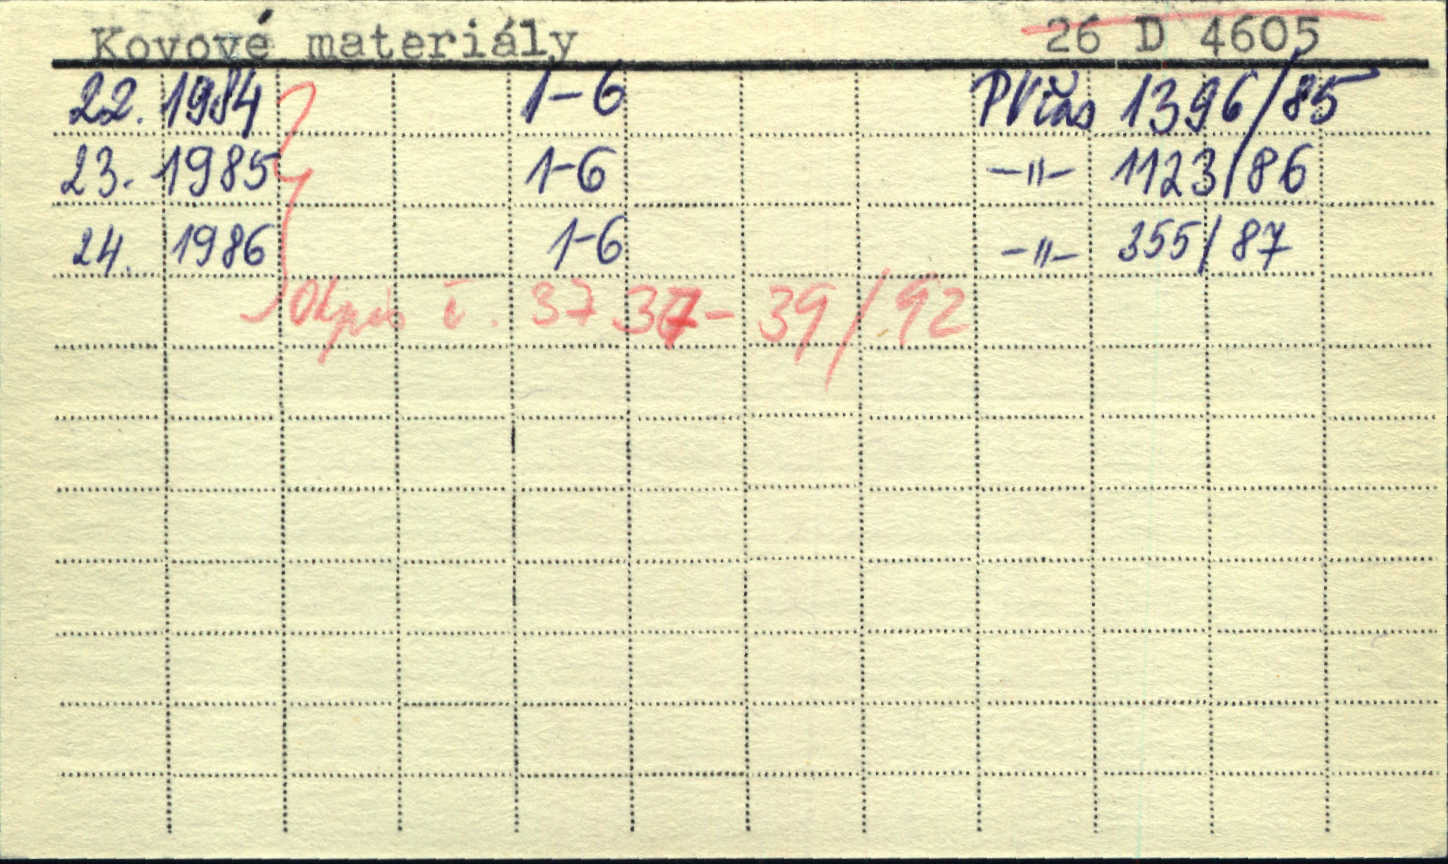 Kovové materiály 26 D 4605
22. 1984 1-6 PVčas 1396/85
23. 1985 1-6 -"- 1123/86
24. 1986 1-6 -"- 355/87
Odpis č. 37 37- 39/92